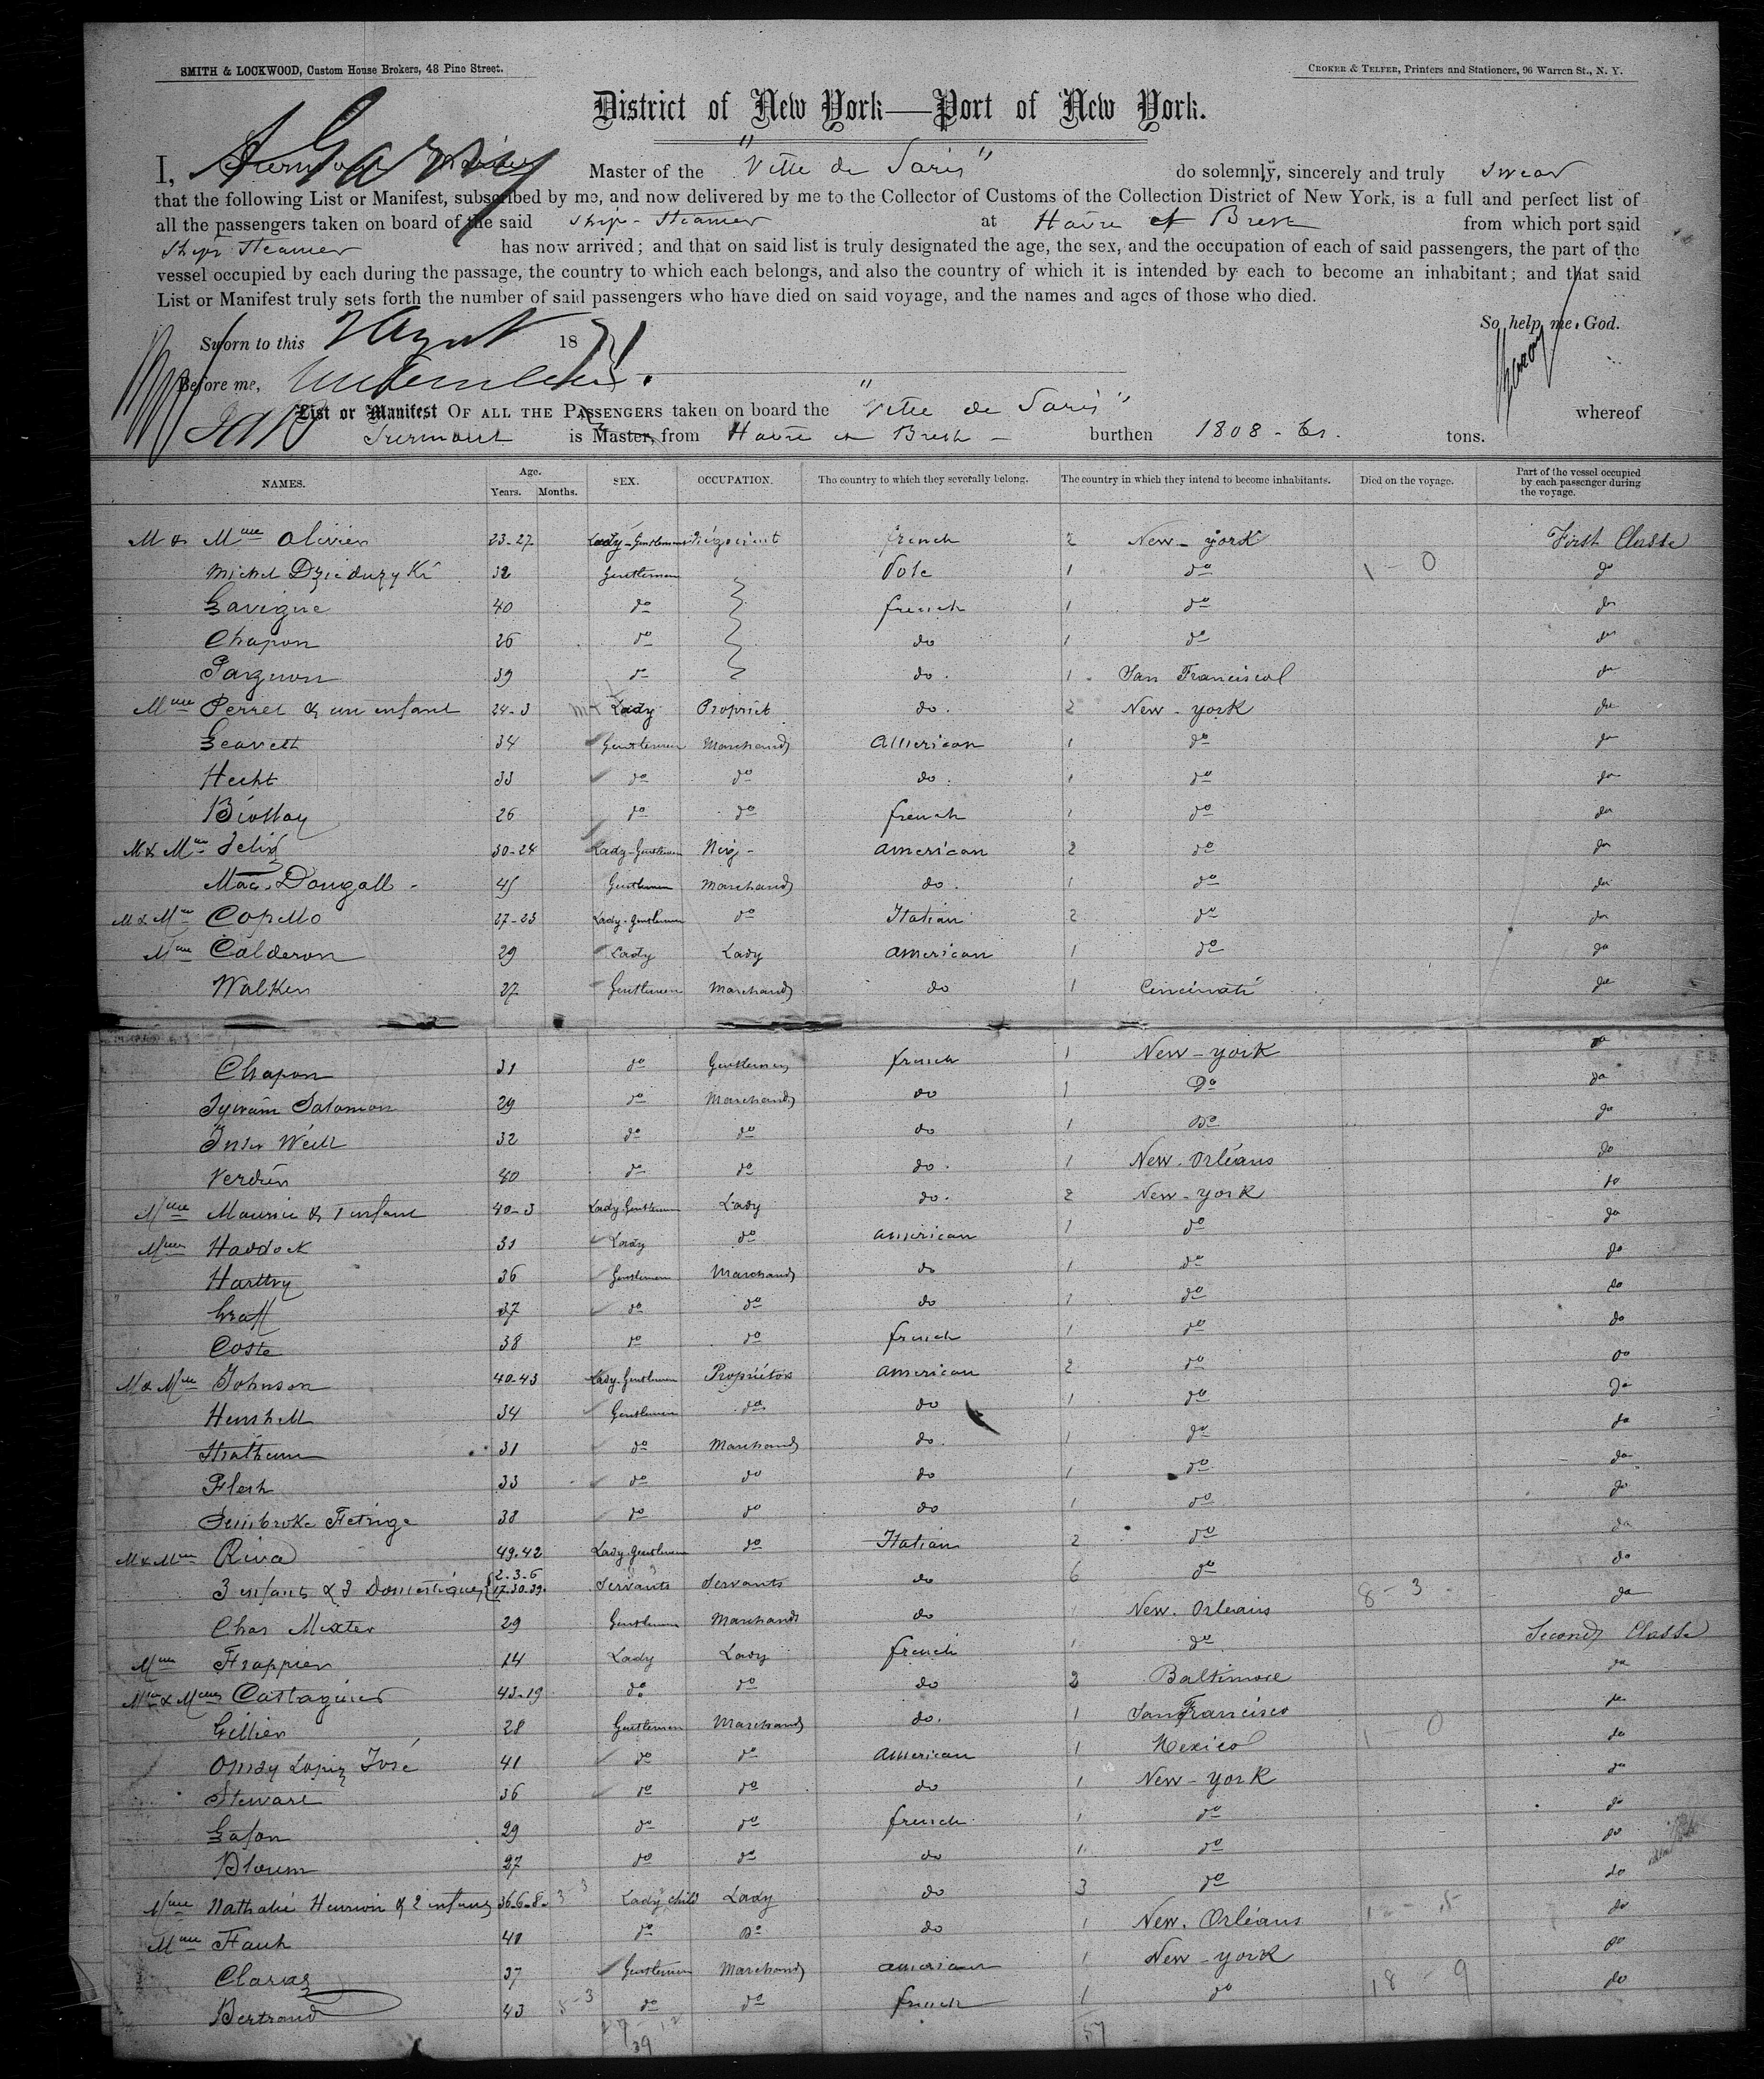 SMITH & LOCKWOOD, Custom House Brokers, 48 Pine Street.
CROKER & TELFER, Printers and Stationers, 96 Warren St., N. Y.
District of New York—Port of New York.
I, Master of the "Ville de Paris" do solemnly, sincerely and truly swear
that the following List or Manifest, subscribed by me, and now delivered by me to the Collector of Customs of the Collection District of New York, is a full and perfect list of
all the passengers taken on board of the said Ship-Steamer at Havre et Brest from which port said
Ship Steamer has now arrived; and that on said list is truly designated the age, the sex, and the occupation of each of said passengers, the part of the
vessel occupied by each during the passage, the country to which each belongs, and also the country of which it is intended by each to become an inhabitant; and that said
List or Manifest truly sets forth the number of said passengers who have died on said voyage, and the names and ages of those who died.
So help me God.
Sworn to this 1871
Before me,
List or Manifest OF ALL THE PASSENGERS taken on board the "Ville de Paris" whereof
Surmont is Master, from Havre et Brest - burthen 1808 - tons.
NAMES. Age. Years. Months. SEX. OCCUPATION. The country to which they severally belong. The country in which they intend to become inhabitants. Died on the voyage. Part of the vessel occupied by each passenger during the voyage.
M & Mme Olivier 23-27 Lady-Gentleman Négociant french 2 New-york First Classe
Michel 32 Gentleman Pole 1 do 1-0 do
Lavigne 40 do french 1 do do
Chapon 26 do do 1 do do
39 do do. 1 San Francisco do
Mme Perret & un enfant 24-3 Lady Propriet do. 2 New-york do
Leavett 34 Gentlemen Marchand American 1 do do
Hecht 33 do do do. 1 do do
26 do do french 1 do do
M & Mme Felix 30-24 Lady-Gentlemen Neg- american 2 do do
Mac. Dougall - 45 Gentlemen Marchand do. 1 do do
M & Mme Copello 27-23 Lady-Gentlemen do Italian 2 do do
Mme Calderon 29 Lady Lady american 1 do do
Walker 27 Gentlemen Marchand do 1 Cincinati do
Chapon 31 do Gentlemen french 1 New-york do
Sylvain Salomon 29 do Marchand do 1 Do do
Weill 32 do do do 1 Do do
Verdun 40 do do do. 1 New. Orléans do
Mme Maurice & 1 enfant 40-3 Lady Gentlemen Lady do. 2 New-york do
Mme Haddock 31 Lady do american 1 do do
36 Gentlemen Marchand do 1 do do
Graff 37 do do do 1 do do
Coste 38 do do french 1 do do
M & Mme Johnson 40-43 Lady-Gentlemen Propriétors american 2 do do
Hershell 34 Gentlemen do do 1 do do
31 do Marchand do. 1 do do
Flesh 33 do do do 1 do do
Pembroke Fetrige 38 do do do 1 do do
M & Mme Riva 49.42 Lady-Gentlemen do Italian 2 do do
3 enfants & 3 Domestiques 2.3.6 17.30.39. Servants Servants do 6 do 8-3 do
Chas Mixter 29 Gentlemen Marchand do 1 New. Orleans do
Mme Frappier 14 Lady Lady french 1 do Second Classe
43-19 do do do 2 Baltimore do
Gillier 28 Gentlemen Marchand do. 1 San Francisco 1-0 do
Lopez José 41 do do american 1 Mexico do
Stewart 36 do do do 1 New-york do
Lafon 29 do do french 1 do do
Bloum 27 do do do 1 do do
Mme Nathalie Henrion & 2 enfants 36-6-8- 3-3 Lady, child Lady do 3 do do
Mme Fauh 40 do Do do 1 New. Orléans do
Clarias 37 Gentlemen Marchand american 1 New-york do
Bertrand 43 do do french 1 do 18-9 do
39 57